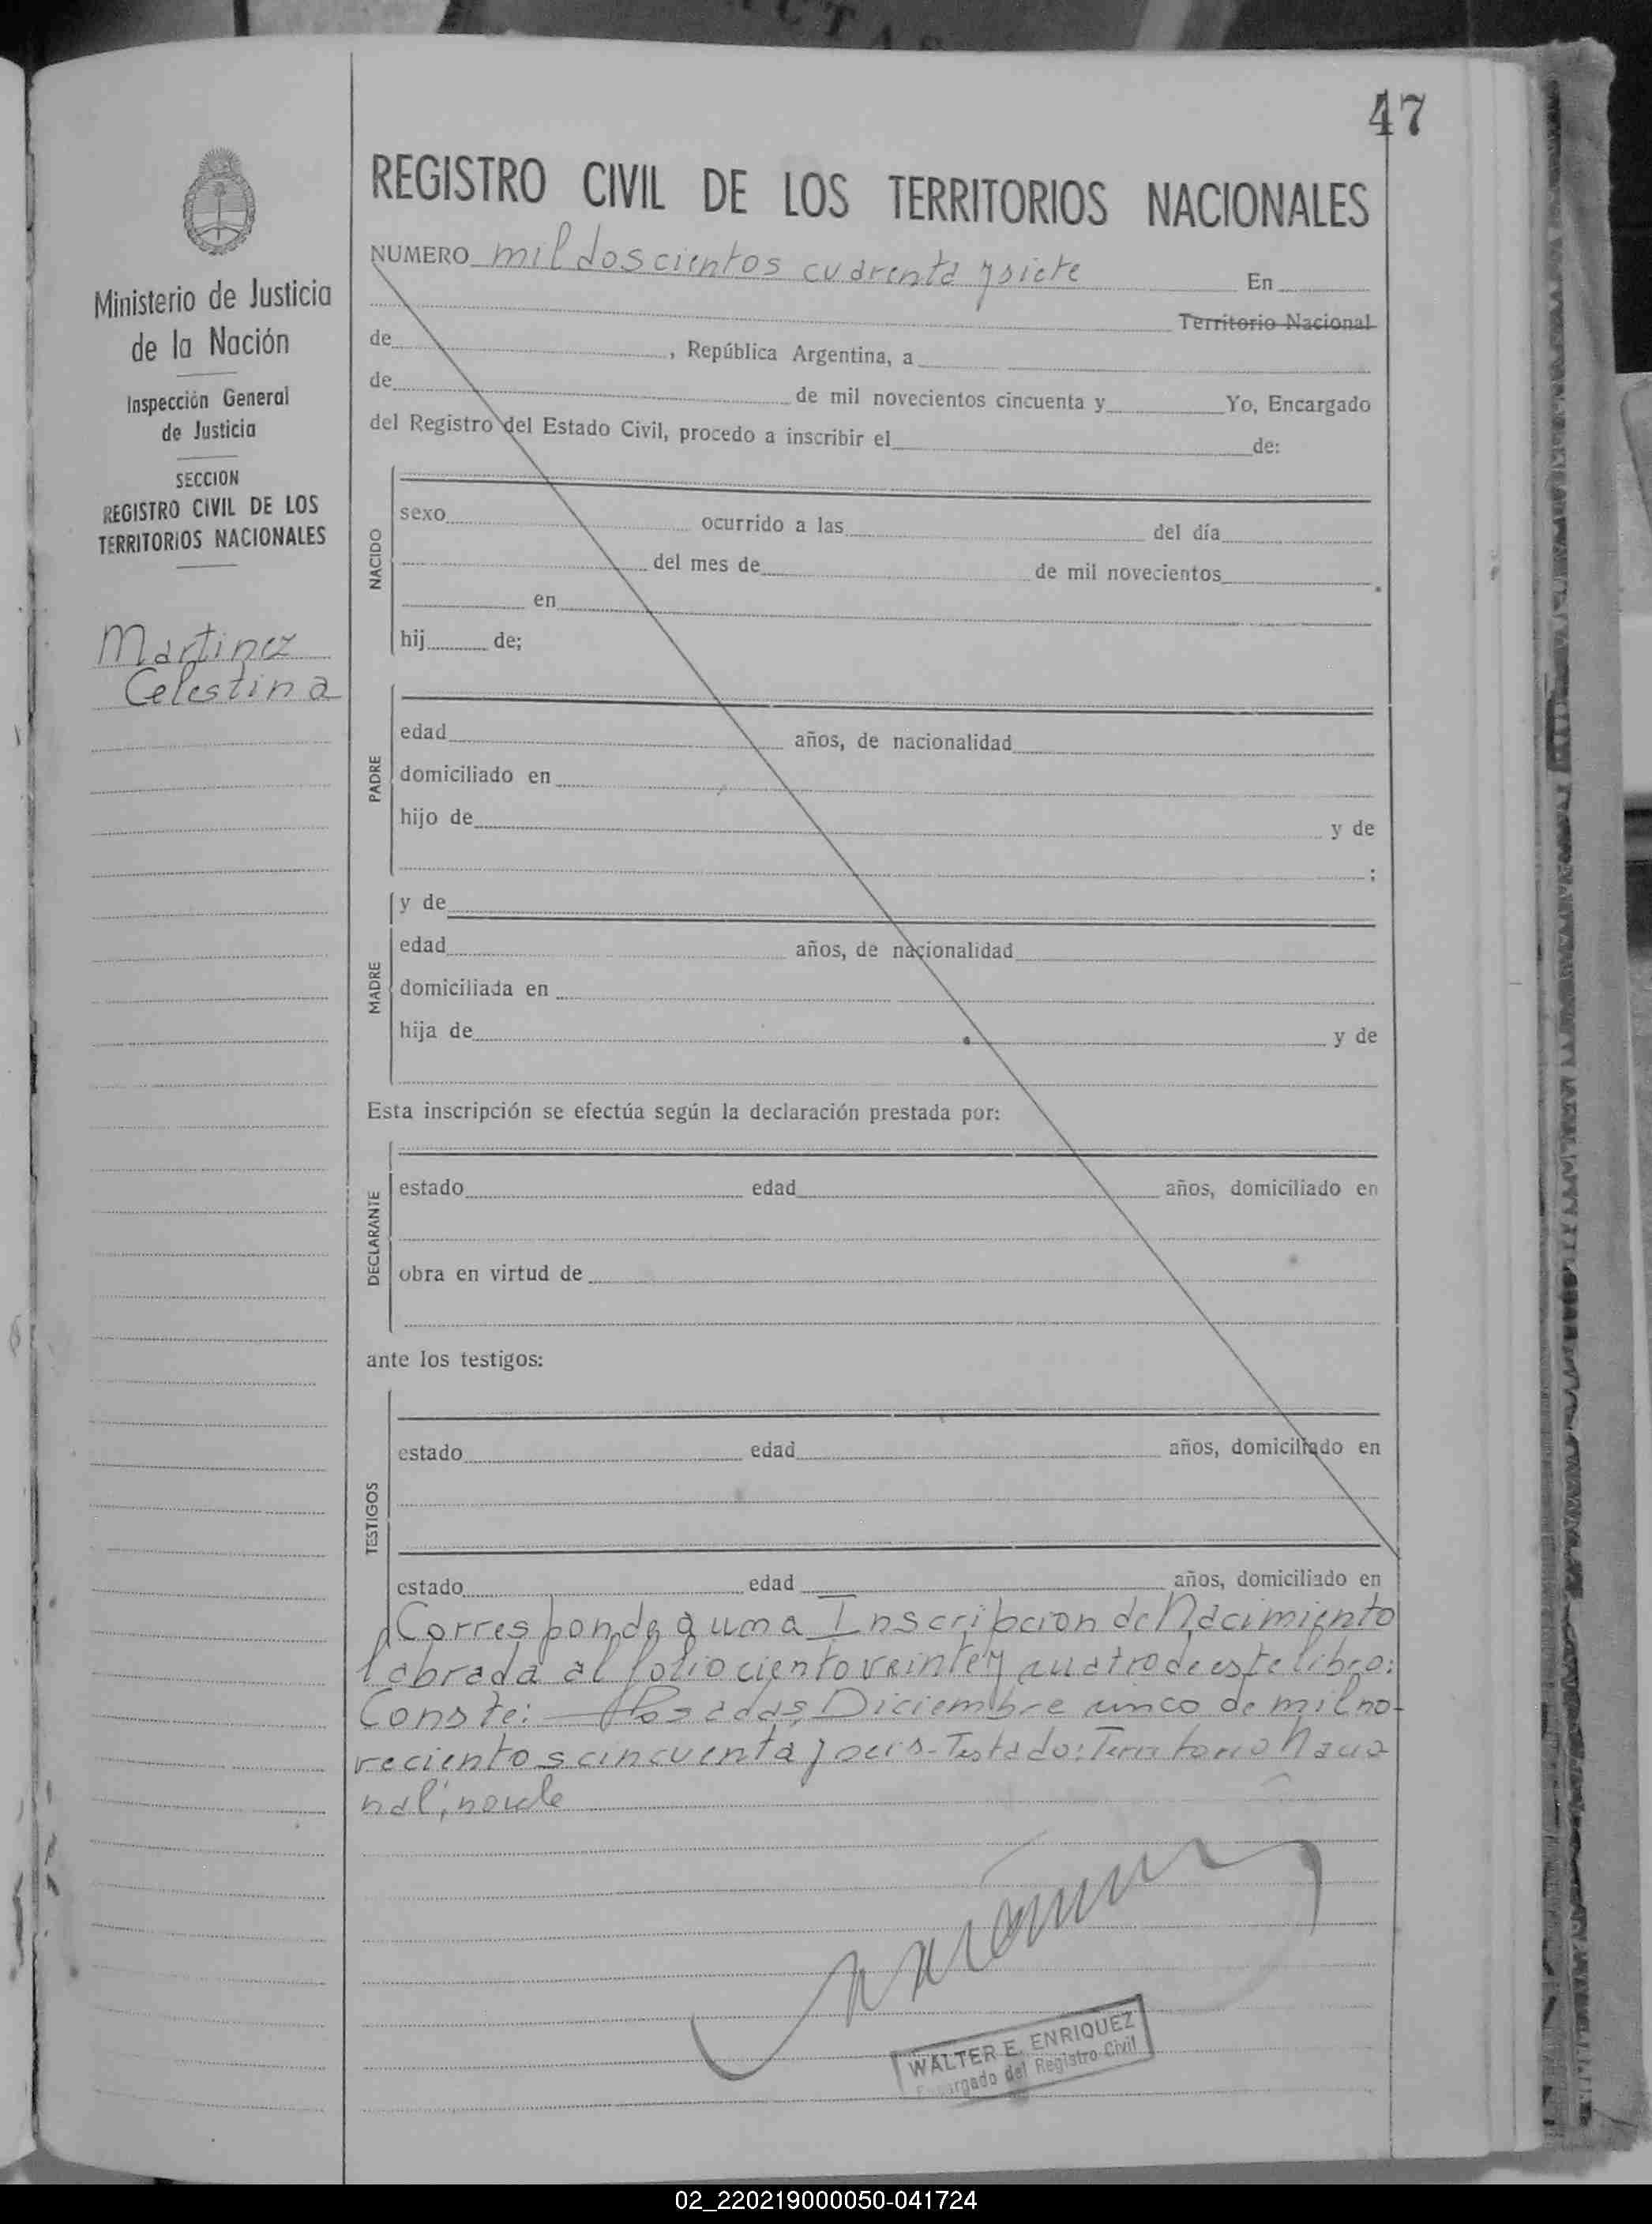 47
REGISTRO CIVIL DE LOS TERRITORIOS NACIONALES
NUMERO mil doscientos cuarenta y siete En
Territorio Nacional
de , República Argentina, a
de de mil novecientos cincuenta y Yo, Encargado
del Registro del Estado Civil, procedo a inscribir el de:
Ministerio de Justicia
de la Nación
Inspección General
de Justicia
SECCION
REGISTRO CIVIL DE LOS
TERRITORIOS NACIONALES
Martinez
Celestina
NACIDO
sexo ocurrido a las del día
del mes de de mil novecientos
en
hij de;
PADRE
edad años, de nacionalidad
domiciliado en
hijo de y de
;
y de
MADRE
edad años, de nacionalidad
domiciliada en
hija de y de
Esta inscripción se efectúa según la declaración prestada por:
DECLARANTE
estado edad años, domiciliado en
obra en virtud de
ante los testigos:
TESTIGOS
estado edad años, domiciliado en
estado edad años, domiciliado en
Corresponde a una Inscripcion de Nacimiento
labrada al folio ciento veinte y cuatro de este libro:
Conste: Posadas, Diciembre cinco de mil no-
vecientos cincuenta y seis - Testado: Territorio Nacio
nal, no vale
WALTER E. ENRIQUEZ
Encargado del Registro Civil
02_220219000050-041724